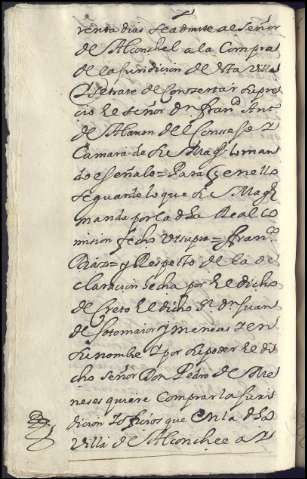 venta dias se admite al señor
de Alconchel a la compra
de la juridicion de dha Villa
y se trate de conzertar su pre
cio el señor Dn franco Anto
de Alarcon del Consejo y
Camara de su Magd lo man
do e señalo = Para que en ello
se guarde lo que su Magd
manda por la dha Real co
mision fecho ut supra = franco
= y Respeto de la de
claracion fecha por el dicho
decreto el dicho Dn Juan
de Sotomaior y meneses y en
su nombre y por su poder el di
cho señor Don Pedro de Me
neses quiere comprar la juri
dicion y oficios que en la dha
Villa de Alconchel a y